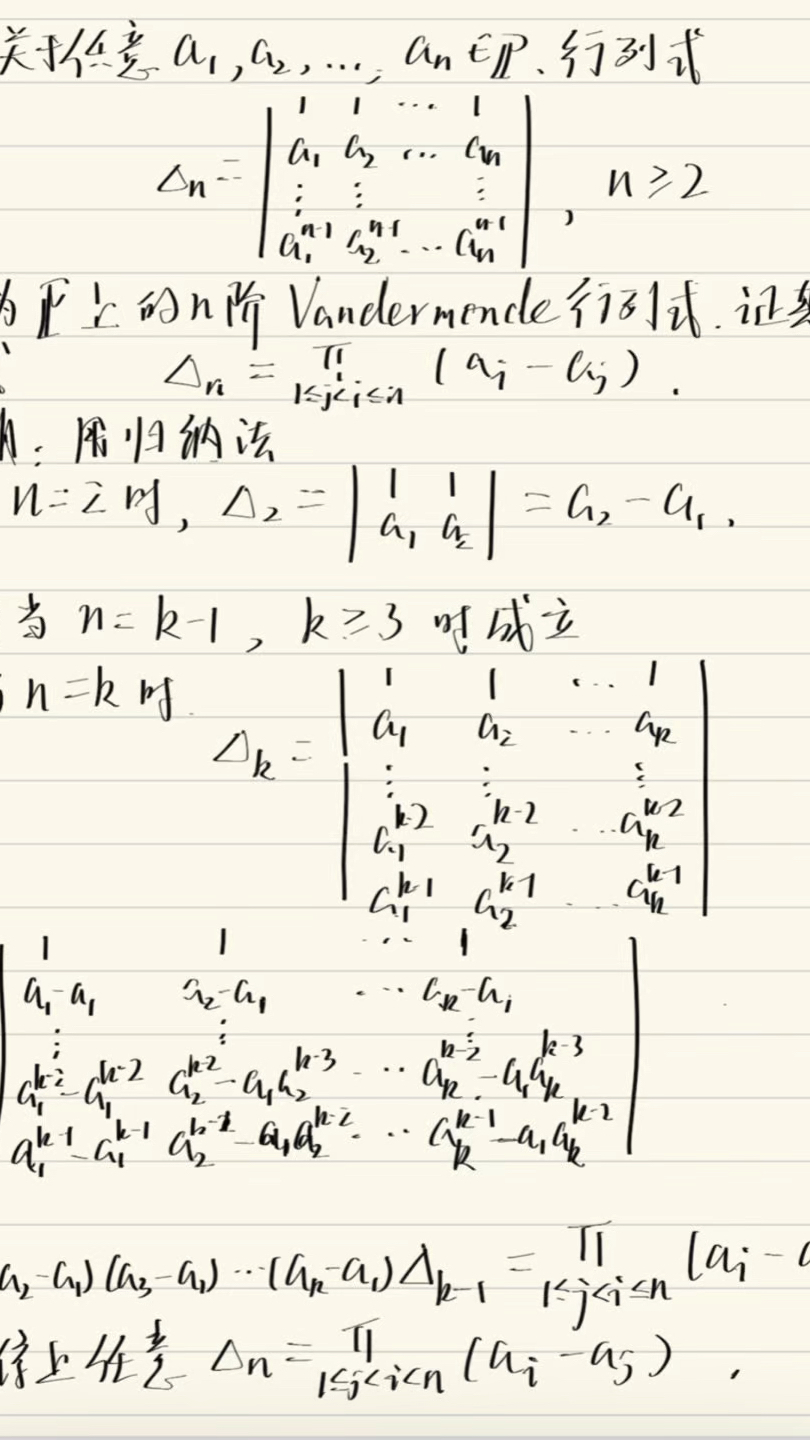 关于任意 a₁, a₂, …, aₙ ∈ P, 行列式
1 1 ⋯ 1
Δₙ = | a₁ a₂ ⋯ aₙ | , n ≥ 2
⋮ ⋮ ⋮
a₁ⁿ⁻¹ a₂ⁿ⁻¹ ⋯ aₙⁿ⁻¹
为 P 上的 n 阶 Vandermonde 行列式. 证
Δₙ = ∏ (aᵢ - aⱼ).
1≤j<i≤n
: 用归纳法
n=2 时, Δ₂ = | 1 1 | = a₂ - a₁,
a₁ a₂
当 n = k-1, k ≥ 3 时成立
n = k 时
1 1 ⋯ 1
Δₖ = | a₁ a₂ ⋯ aₖ |
⋮ ⋮ ⋮
a₁ᵏ⁻² a₂ᵏ⁻² ⋯ aₖᵏ⁻²
a₁ᵏ⁻¹ a₂ᵏ⁻¹ ⋯ aₖᵏ⁻¹
1 1 ⋯ 1
a₁-a₁ a₂-a₁ ⋯ aₖ-aᵢ
⋮ ⋮ ⋮
a₁ᵏ⁻²-a₁ᵏ⁻² a₂ᵏ⁻²-a₁a₂ᵏ⁻³ ⋯ aₖᵏ⁻²-a₁aₖᵏ⁻³
a₁ᵏ⁻¹-a₁ᵏ⁻¹ a₂ᵏ⁻¹-a₁a₂ᵏ⁻² ⋯ aₖᵏ⁻¹-a₁aₖᵏ⁻²
a₂-a₁)(a₃-a₁)⋯(aₖ-a₁)Δₖ₋₁ = ∏ (aᵢ -
1≤j<i≤n
上任意 Δₙ = ∏ (aᵢ - aⱼ) ,
1≤j<i<n